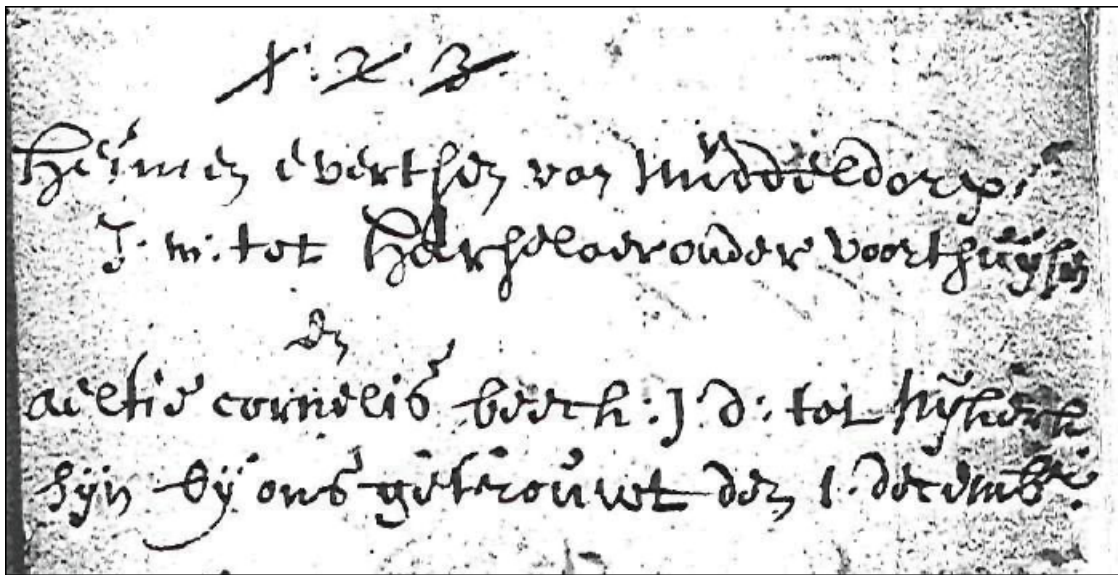 1. 2. 3.
Heimen everthsen van Middeldorp:
J: m: tot Harseloer onder voorthuijsen
En
aeltie cornelis beeck: J: d: tot Nijkerk
sijn bij ons getrouwet den 1. decemb: